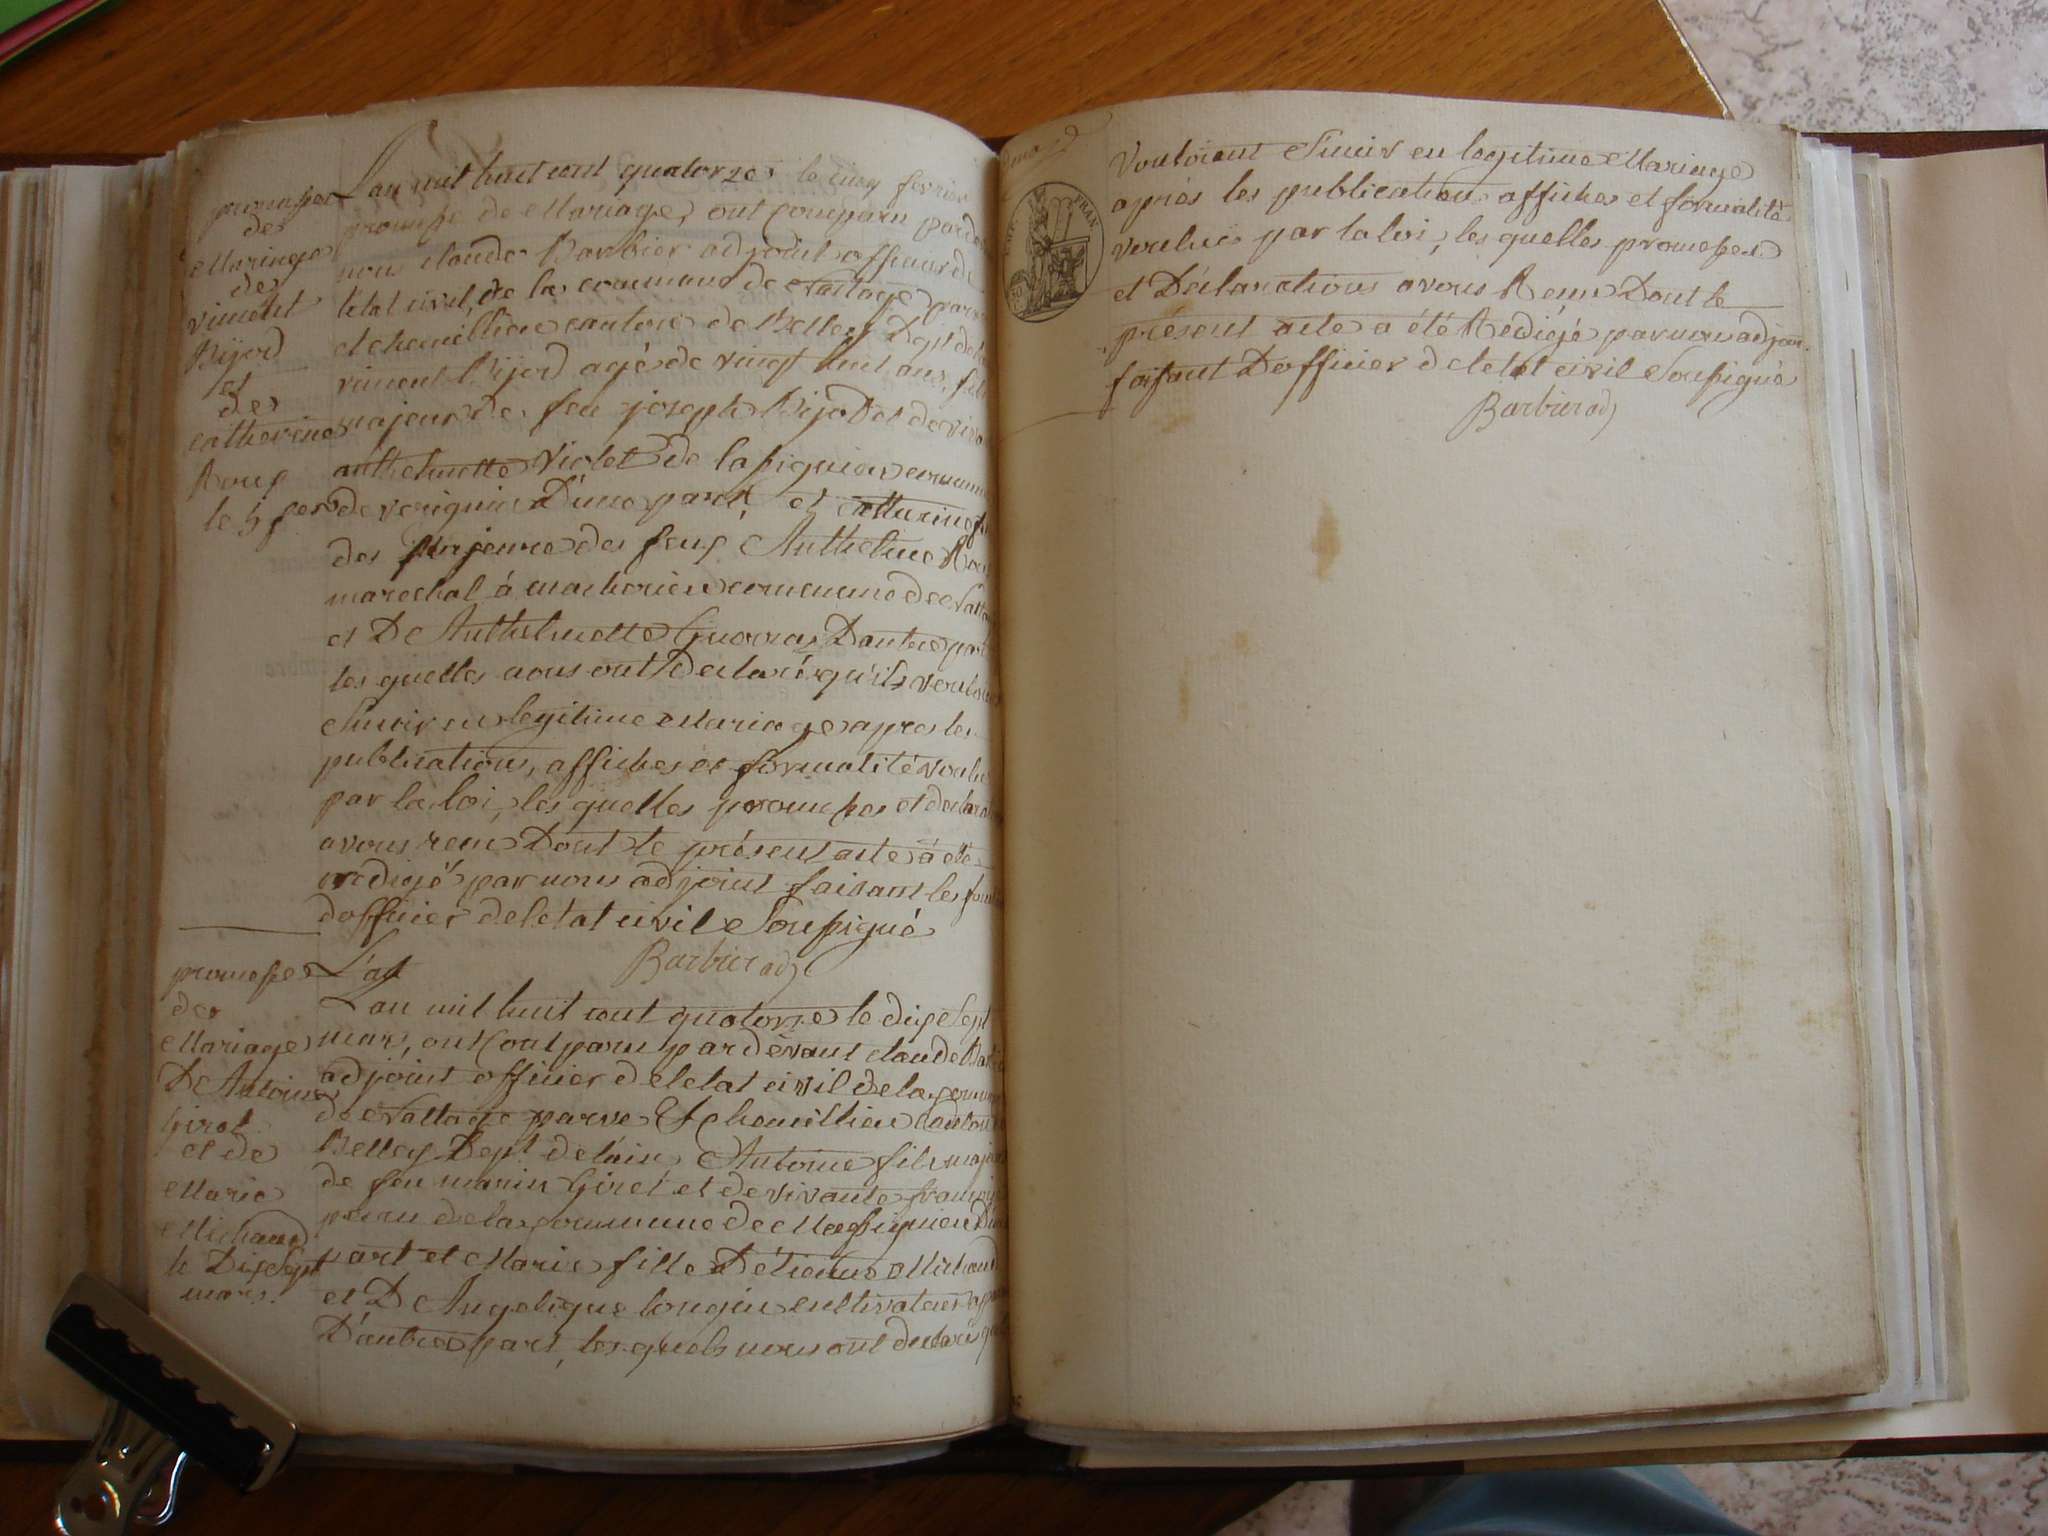 promesse
de
Mariage
de
vincent
Bijod
et
de
catherine
Roux
le 5 fev
L'an mil huit cent quatorze le cinq fevrier
promesse de Mariage, ont comparu pardev
nous claude Barbier adjoint officier de
l'état civil, de la commune de Nattage parve
et chemillieu canton de Belley Dept de l'ain
vincent Bijod agé de vingt huit ans, fils
majeur de feu joseph Bijod et de viva
anthelmette Violet de lassignieu commune
de virignin D'une part, et catherine fi
des majeure des feux Anthelme Rou
marechal à nacherieu commune de Natta
et D Anthelmette Guerras D'autre part
les quelles nous ont déclaré qu'ils vouloient
S'unir en legitime Mariage apres les
publications, affiches et formalité voulu
par la loi, les quelles promesses et declara
avons recu Dont le présent acte a été
redigé par nous adjoint faisant les fonc
d'officier de letat civil Soussigné
Barbier adj
promesse
de
Mariage
D Antoine
Giret
et de
Marie
Michaud
le Dix Sept
mars.
L'an
L'an mil huit cent quatorze le dix Sept
mars, ont comparu pardevant claude Barb
adjoint officier de letat civil de la commune
de Nattage parve Et chemillieu canton
Belley Dept de l'ain Antoine fils majeur
de feu marin Giret et de vivante françoi
de la commune de Massignieu D'une
part et Marie fille D'étienne Michaud
et D Angelique longin cultivateur
D'autre part, les quels nous ont declaré qu
vouloient S'unir en legitime Mariage
après les publication affiches et formalité
voulues par la loi, les quelles promesses
et Déclarations avons Reçu Dont le
présent acte a été Rédigé par nous adjoin
faisant D'officier de letat civil Soussigné
Barbier adj
FRAN